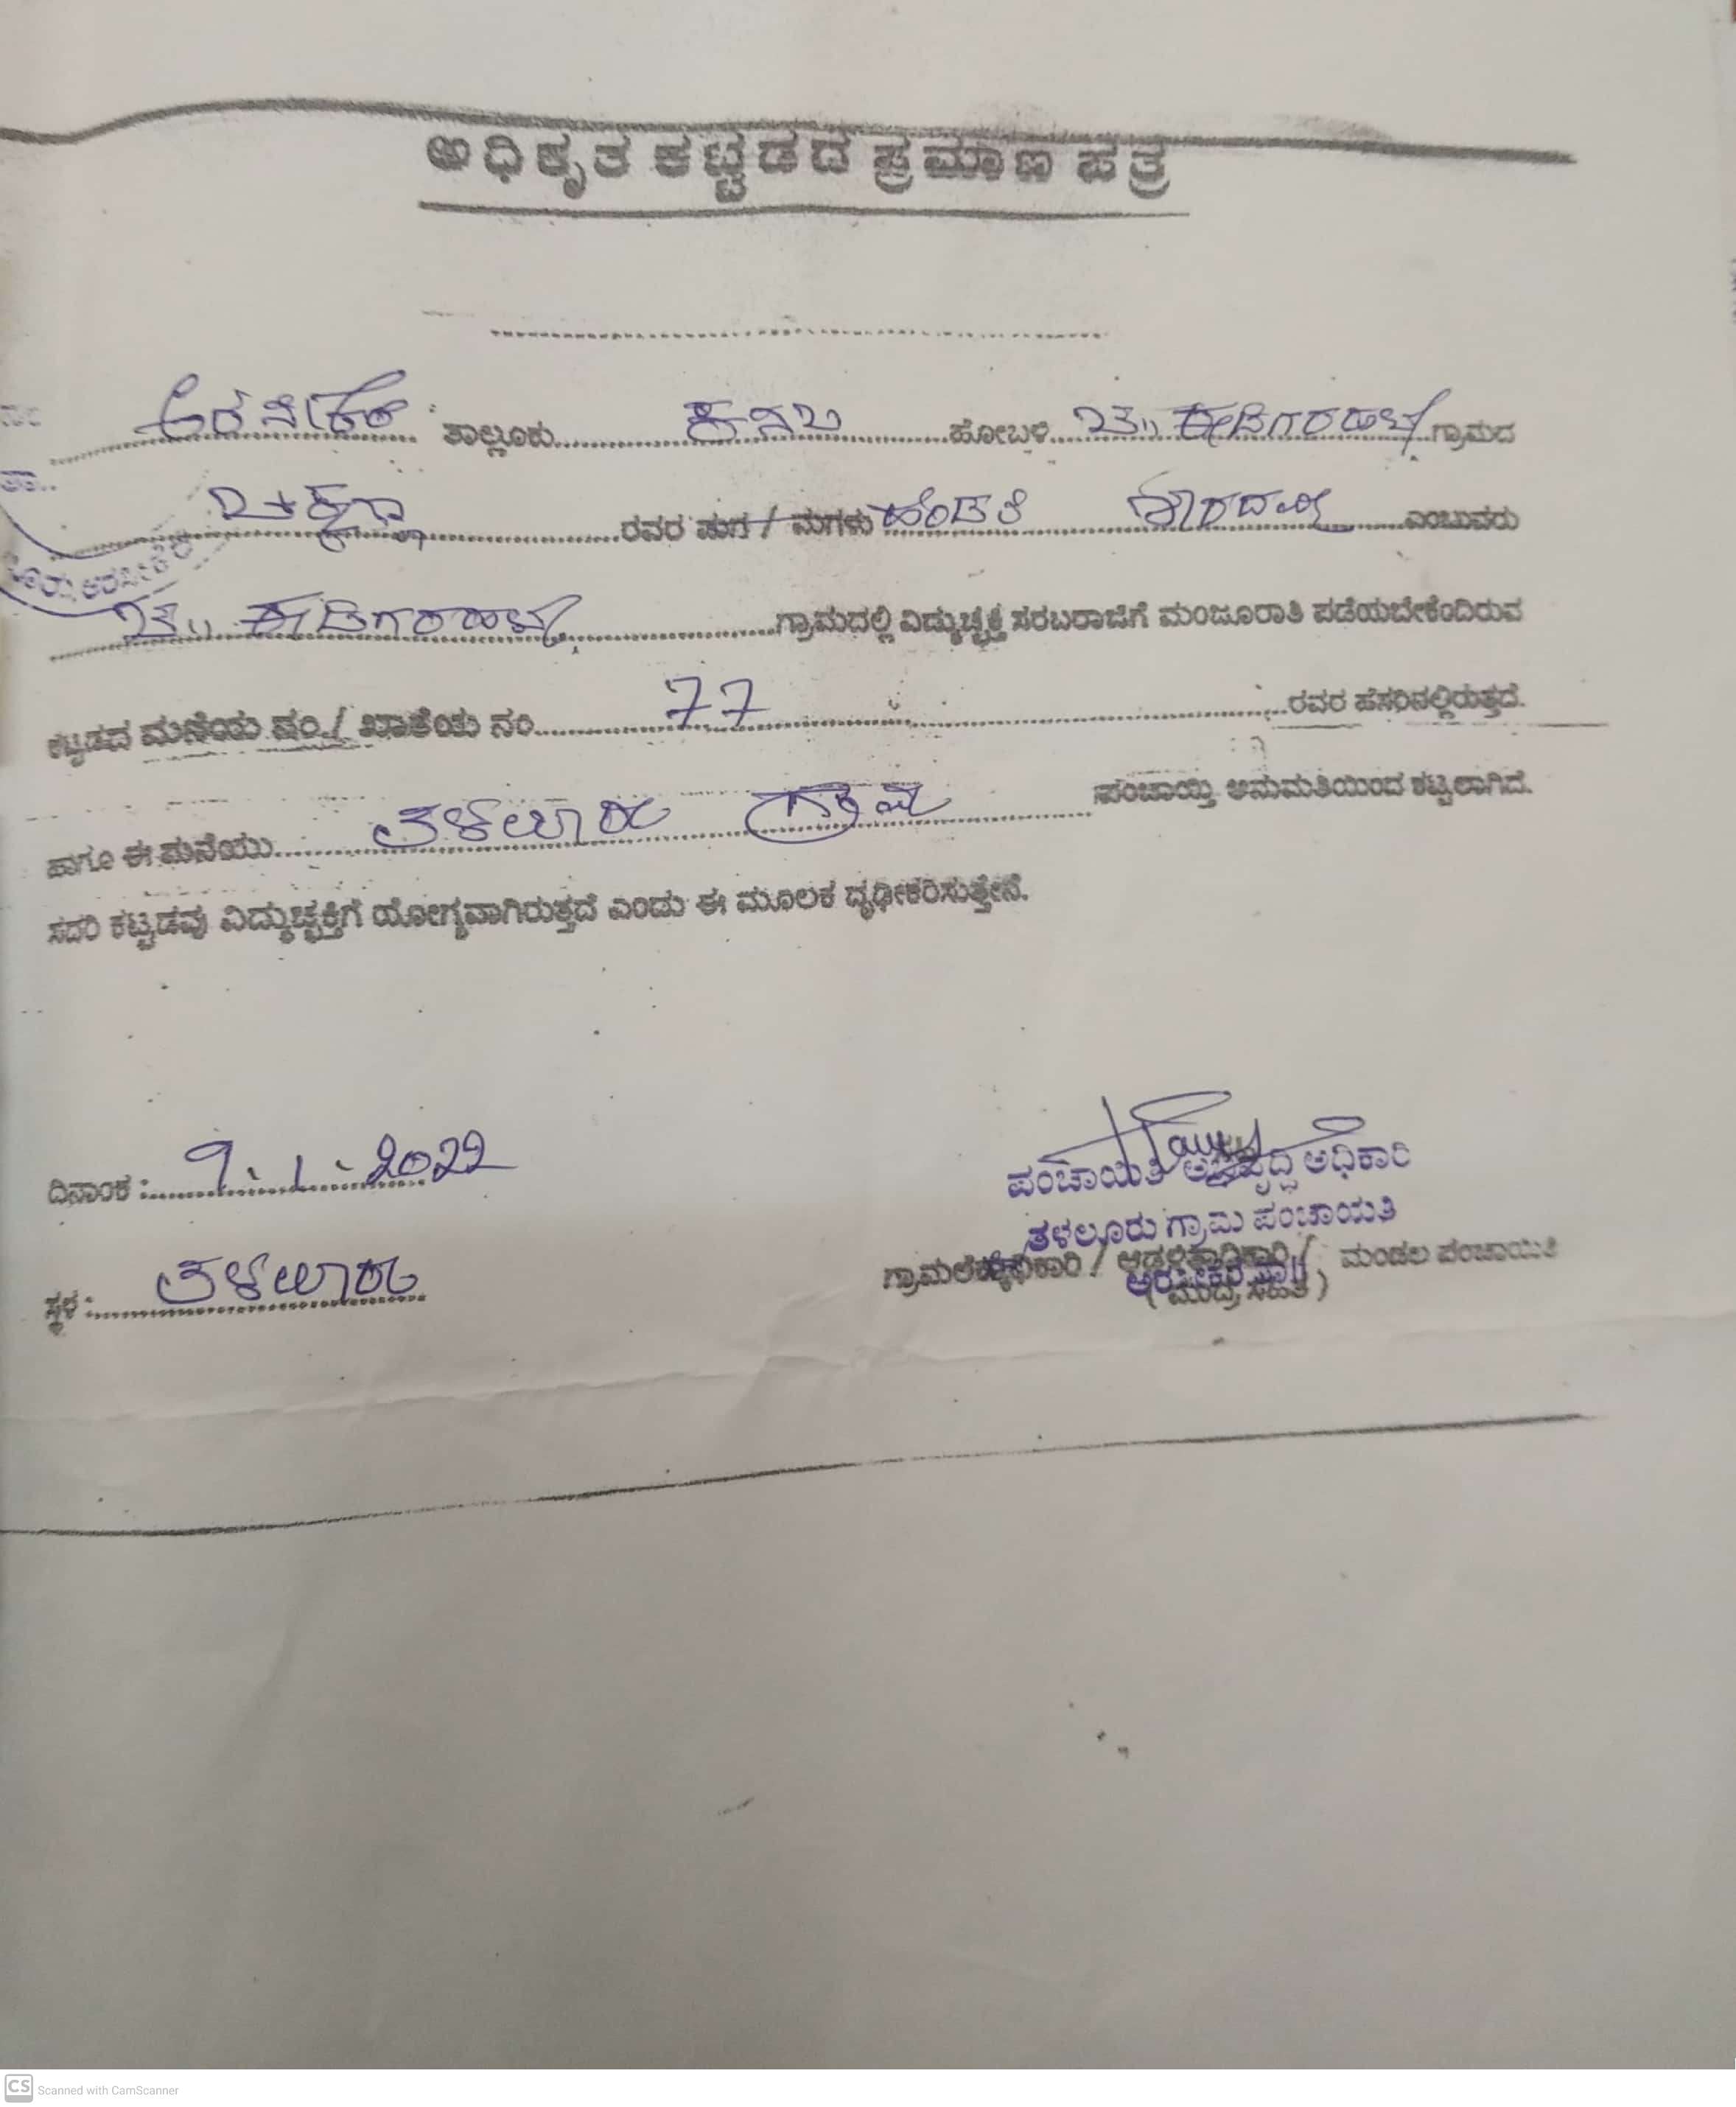 ಅಧಿಕೃತ ಕಟ್ಟಡದ ಪ್ರಮಾಣ ಪತ್ರ
ಅರಸೀಕೆರೆ ತಾಲ್ಲೂಕು ಕಸಬ ಹೋಬಳಿ ಈಡಿಗರಹಳ್ಳಿ ಗ್ರಾಮದ
ರವರ ಮಗ / ಮಗಳು ಹೆಂಡತಿ ಶಾರದಮ್ಮ ಎಂಬುವರು
ಈಡಿಗರಹಳ್ಳಿ ಗ್ರಾಮದಲ್ಲಿ ವಿದ್ಯುಚ್ಛಕ್ತಿ ಸರಬರಾಜಿಗೆ ಮಂಜೂರಾತಿ ಪಡೆಯಬೇಕೆಂದಿರುವ
ಕಟ್ಟಡದ ಮನೆಯ ನಂ. / ಖಾತೆಯ ನಂ. 77 ರವರ ಹೆಸರಿನಲ್ಲಿರುತ್ತದೆ.
ಹಾಗೂ ಈ ಮನೆಯು ತಳಲೂರು ಗ್ರಾಮ ಪಂಚಾಯ್ತಿ ಅನುಮತಿಯಿಂದ ಕಟ್ಟಲಾಗಿದೆ.
ಸದರಿ ಕಟ್ಟಡವು ವಿದ್ಯುಚ್ಛಕ್ತಿಗೆ ಯೋಗ್ಯವಾಗಿರುತ್ತದೆ ಎಂದು ಈ ಮೂಲಕ ದೃಢೀಕರಿಸುತ್ತೇನೆ.
ದಿನಾಂಕ : 9.1.2022
ಪಂಚಾಯತಿ ಅಭಿವೃದ್ಧಿ ಅಧಿಕಾರಿ
ತಳಲೂರು ಗ್ರಾಮ ಪಂಚಾಯತಿ
ಗ್ರಾಮಲೆಕ್ಕಾಧಿಕಾರಿ / ಆಡಳಿತಾಧಿಕಾರಿ / ಮಂಡಲ ಪಂಚಾಯಿತಿ
ಅರಸೀಕೆರೆ ತಾ||
(ಮುದ್ರೆ ಸಹಿತ)
ಸ್ಥಳ : ತಳಲೂರು
CS Scanned with CamScanner